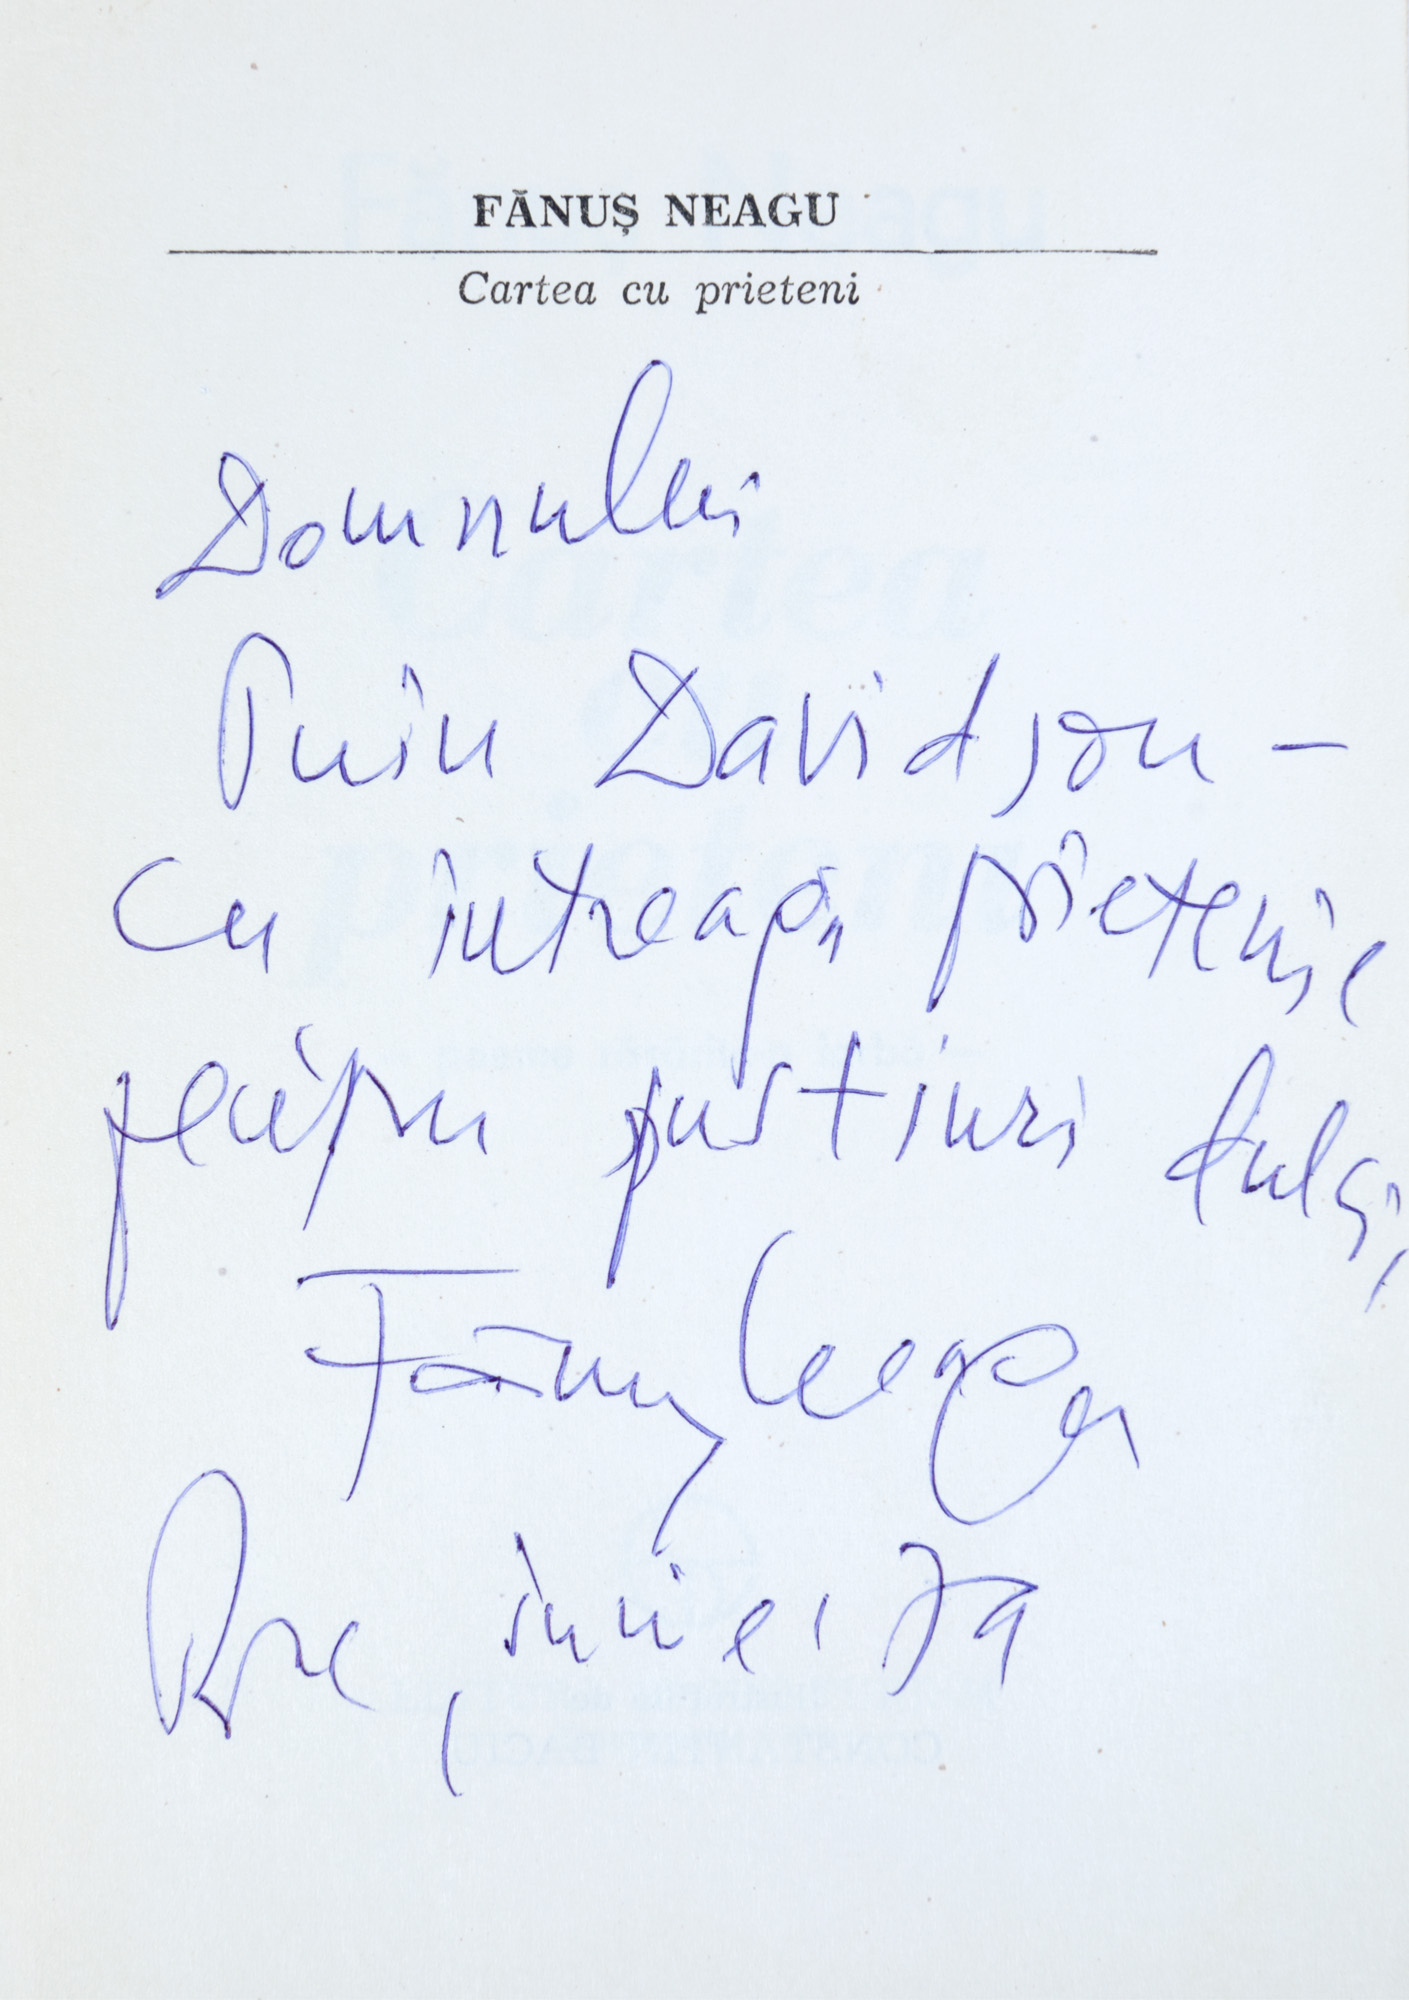 FĂNUȘ NEAGU
Cartea cu prieteni
Domnului
Puiu Davidson –
cu întreagă prietenie
pustiuri dulci,
Fănuș Neagu